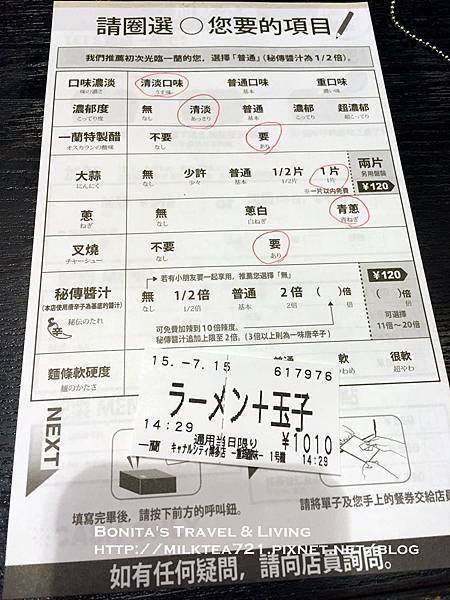 請圈選○您要的項目
我們推薦初次光臨一蘭的您，選擇「普通」(秘傳醬汁為1/2倍)。
口味濃淡 清淡口味 普通口味 重口味
味の濃さ うす味 基本 濃い味
濃郁度 無 清淡 普通 濃郁 超濃郁
こってり度 なし あっさり 基本 こってり 超こってり
一蘭特製醋 不要 要
オスカランの酸味 なし あり
大蒜 無 少許 普通 1/2片 1片 兩片
にんにく なし 少々 基本 1/2片 1片 另用盤裝
※一片以内免費 ¥120
蔥 無 蔥白 青蔥
ねぎ なし 白ねぎ 青ねぎ
叉燒 不要 要
チャーシュー なし あり
若有小朋友要一起享用，推薦您選擇「無」 ¥120
秘傳醬汁 無 1/2倍 普通 2倍 ( )倍 ( )倍
(本店使用唐辛子為基底的醬汁) なし 1/2倍 基本 2倍 倍 倍
秘伝のたれ 可選擇
可免費加辣到10倍辣度。 11倍～20倍
秘傳醬汁追加上限至2倍。(3倍以上則為一味唐辛子)
麵條軟硬度 普通 軟 很軟
麺のかたさ 超やわ
15.-7.15 617976
ラーメン＋玉子
14:29 通用当日限り ¥1010
一蘭 キャナルシティ博多店 1号機 14:29
NEXT
填寫完畢後，請按下前方的呼叫鈕。
請將單子及您手上的餐券交給店員
BONITA'S TRAVEL & LIVING
HTTP://MILKTEA721.PIXNET.NET/BLOG
如有任何疑問，請向店員詢問。